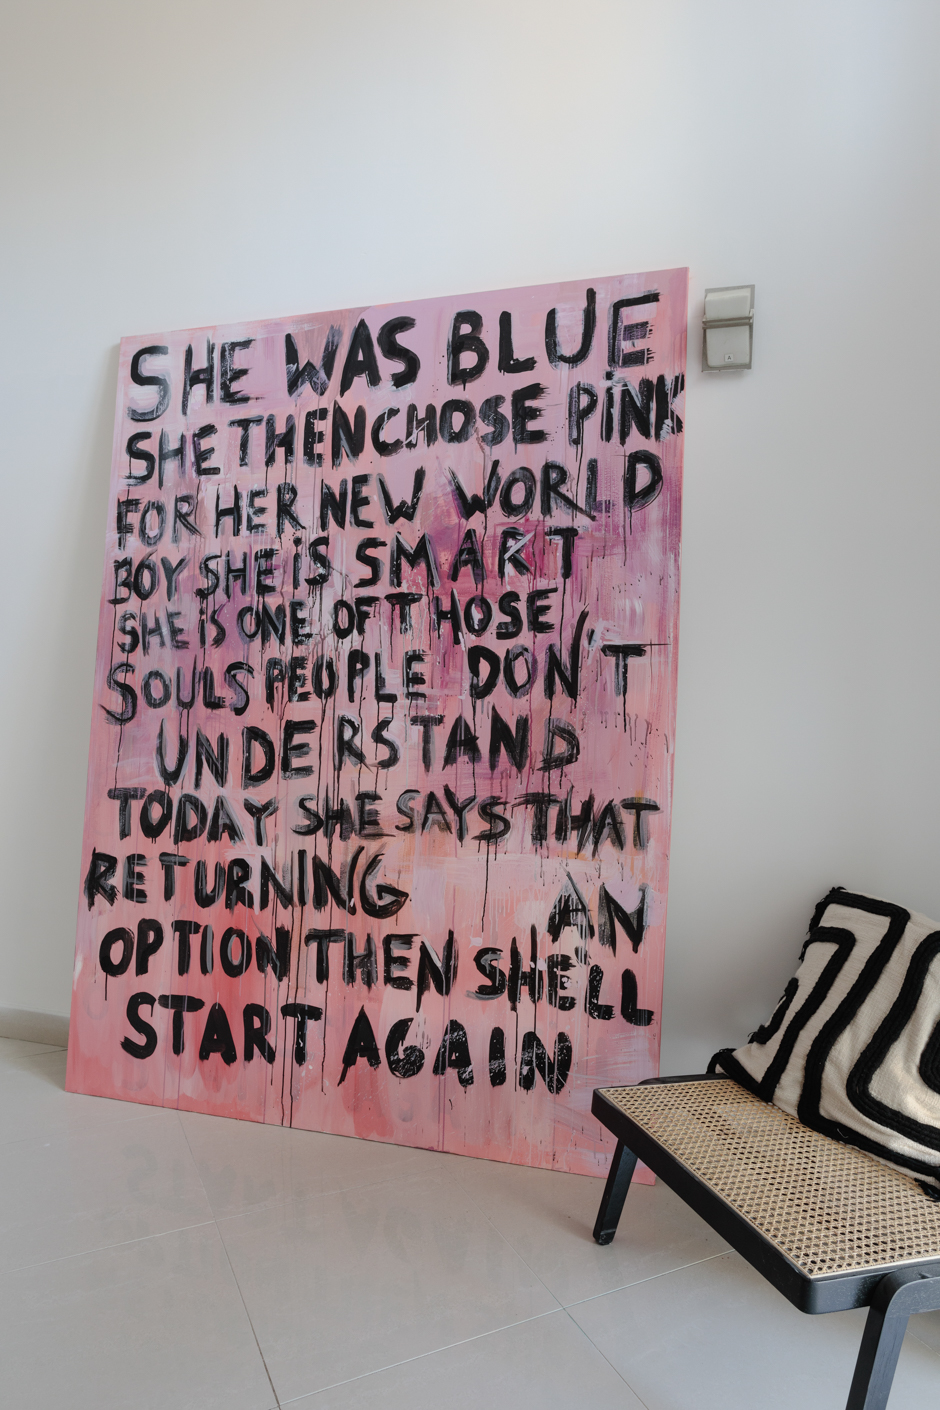 SHE WAS BLUE
SHE THEN CHOSE PiNK
FOR HER NEW WORLD
BOY SHE iS SMART
SHE iS ONE OF THOSE
SOULS PEOPLE DON'T
UNDERSTAND
TODAY SHE SAYS THAT
RETURNING AN
OPTION THEN SHELL
START AGAIN